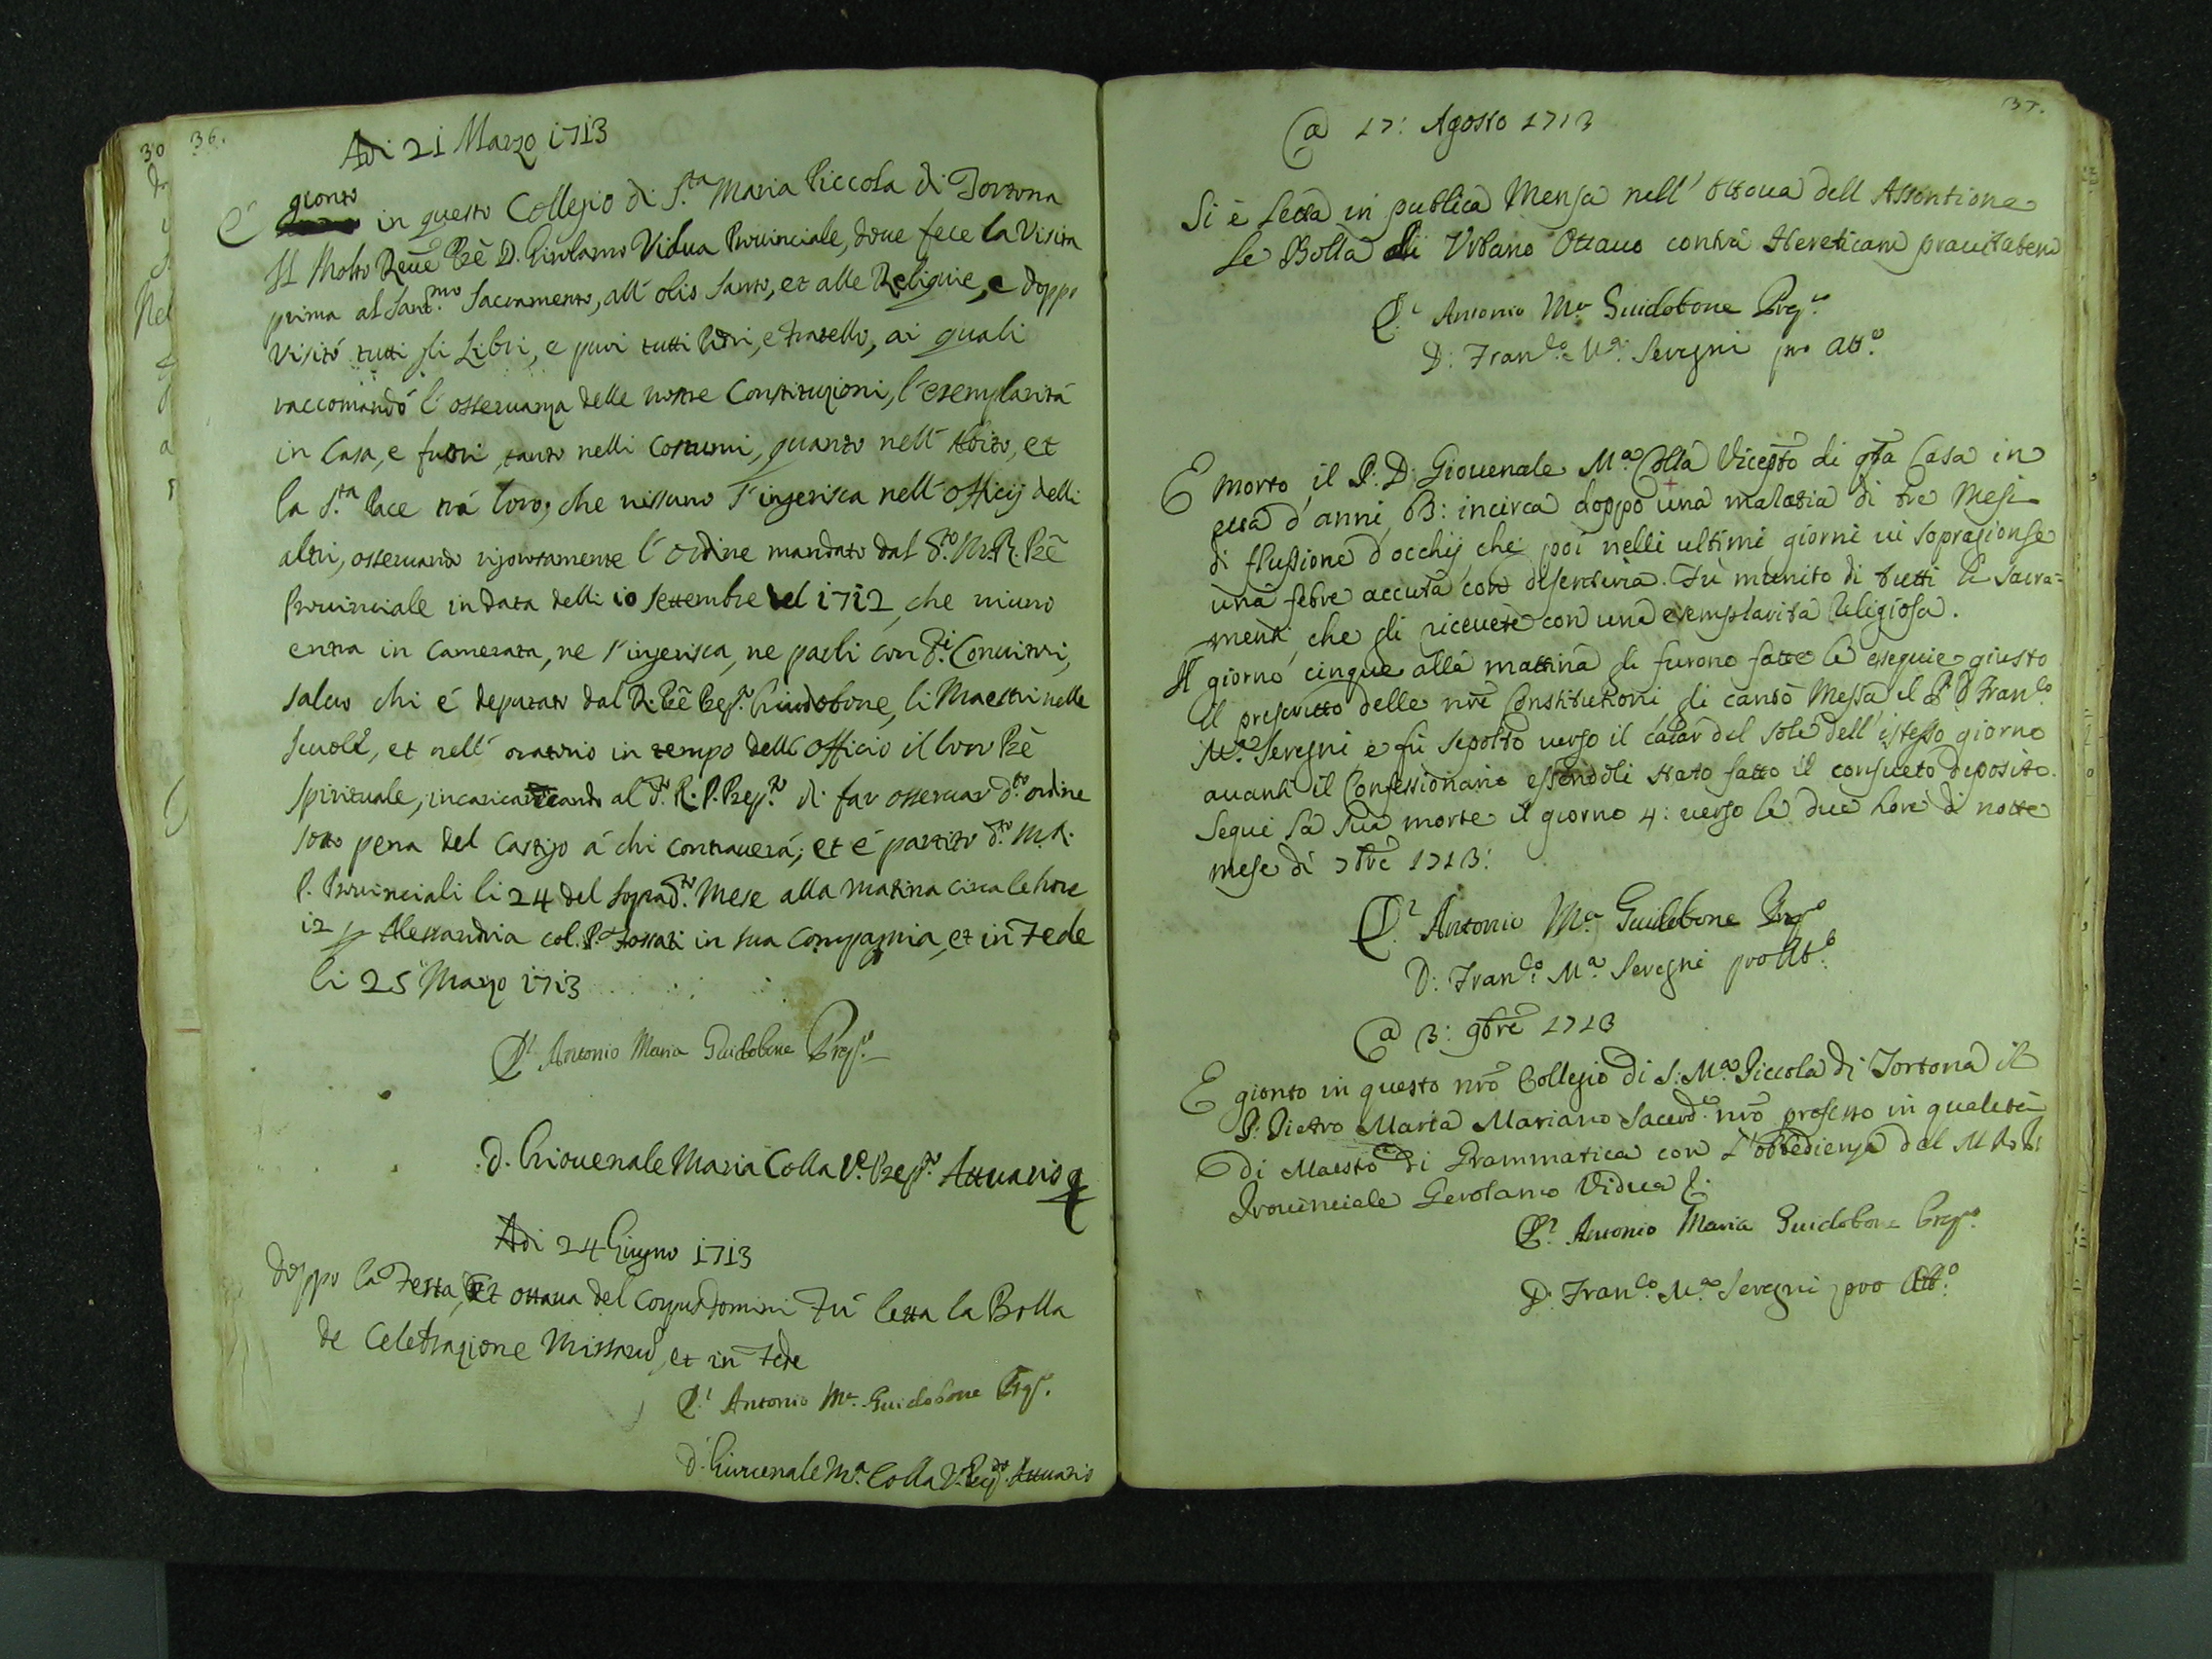 36.
Adi 21 Marzo 1713
gionto
É in questo Collegio di S.ta Maria Piccola di Tortona
Il Molto Reuē Prē D. Girolamo Vidua Prouinciale, doue fece la Visita
prima al Sant.mo Sacramento, all' olio Santo, et alle Reliquie, e doppo
Visitó tutti gli Libri, e puoi tutti Pdri, e Fratello, ai quali
raccomandó l'osseruanza delle nostre Constituzioni, l'exemplaritá
in Casa, e fuori, tanto nelli Costumi, quanto nell' Abito, et
la S.ta Pace trá loro; che nissuno s'ingerisca nell' Officij delli
altri, osseruando rigorosamente l'Ordine mandato dal d.to M.R. Prē
Prouinciale in data delli 10 Settembre del 1712, che niuno
entra in Camerata, ne s'ingerisca, ne parli con d.i Conuitori,
saluo chi é deputato dal R. Prē Prep.to Guidobone, li Maestri nelle
Scuole, et nell' oratorio in tempo dell' Officio il loro Prē
Spirituale, incaricando al d.to R. P. Prep.to di far osseruar d.to ordine
sotto pena del Castigo á chi contrauerá; et é partito d.to M.R.
P. Prouinciali li 24 del soprad.to Mese alla matina circa le hore
12 p Alessandria col. P. Fossati in sua Compagnia, et in Fede
li 25 Marzo 1713
D. Antonio Maria Guidobone Prep.to
D. Giouenale Maria Colla V.e Prep.to Attuario
Adi 24 Giugno 1713
doppo la Festa, Et ottaua del Corpus Domini Fú letta la Bolla
de Celebrazione Missarū, et in Fede
D. Antonio M.a Guidobone Prep.
D. Giouenale M.a Colla V. Prep.to Attuario
37.
@ 17: Agosto 1713
Si è letta in publica Mensa nell' Ottaua dell Assontione
le Bolla di Vrbano Ottauo contra Hereticam prauitatem
D. Antonio M.a Guidobone Prep.to
D: Fran.co M.a Seregni pro Att.o
E morto il P: D: Giouenale M.a Colla Vicepto di qta Casa in
età d'anni 63: incirca doppo una malatia di tre Mesi
di flussione d'occhij, che poi nelli ultimi giorni ui sopragionse
una febre accuta con disenteria. Fù munito di tutti li Sacra=
menti, che gli riceuete con una exemplarità Religiosa.
Il giorno cinque alla mattina se furono fatte le esequie giusto
il prescritto delle nrē Constitutioni, gli cantò Messa il P. D. Fran.co
M.a Seregni e fù sepolto uerso il calar del Sole dell' istesso giorno
auanti il Confessionario essendoli stato fatto il consueto deposito.
Seguì la sua morte il giorno 4: uerso le due hore di notte
mese di 7brē 1713:
D. Antonio M.a Guidobone Prep.to
D: Fran.co M.a Seregni pro Att.o
@ 3: 9brē 1713
E gionto in questo nrō Collegio di S: M.a Piccola di Tortona il
P: Pietro Maria Mariano Sacerd.e nrō professo in qualità
di Maestro di Grammatica con l'obbedienza del M R P:
Prouinciale Gerolamo Vidua
D. Antonio Maria Guidobone Prep.to
D: Fran.co M.a Seregni pro Att.o